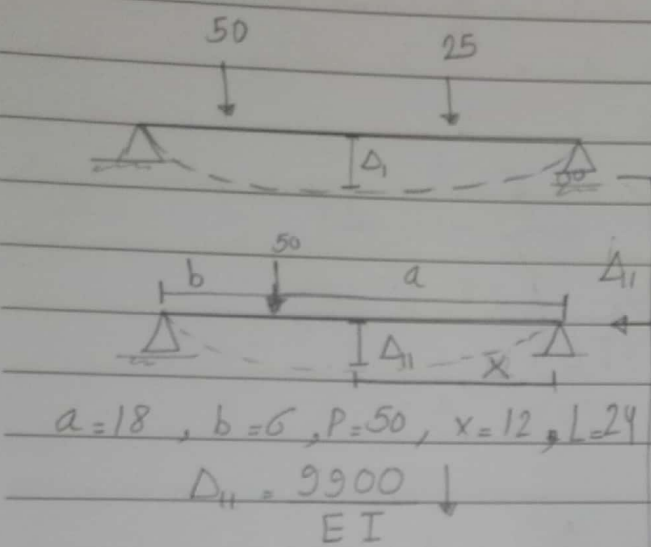 50 25
Δ₁
50
b a Δ₁₁
Δ₁₁ x
a=18 , b=6 , P=50 , x=12 , L=24
Δ₁₁ = 9900 / EI ↓